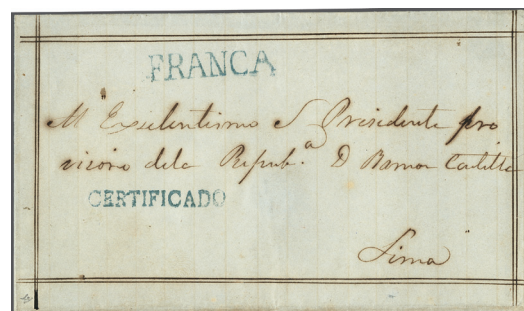 FRANCA
Al Exselentismo S Precidente pro
vicorio dela Repub.ª D Ramon Castilla
CERTIFICADO
Lima